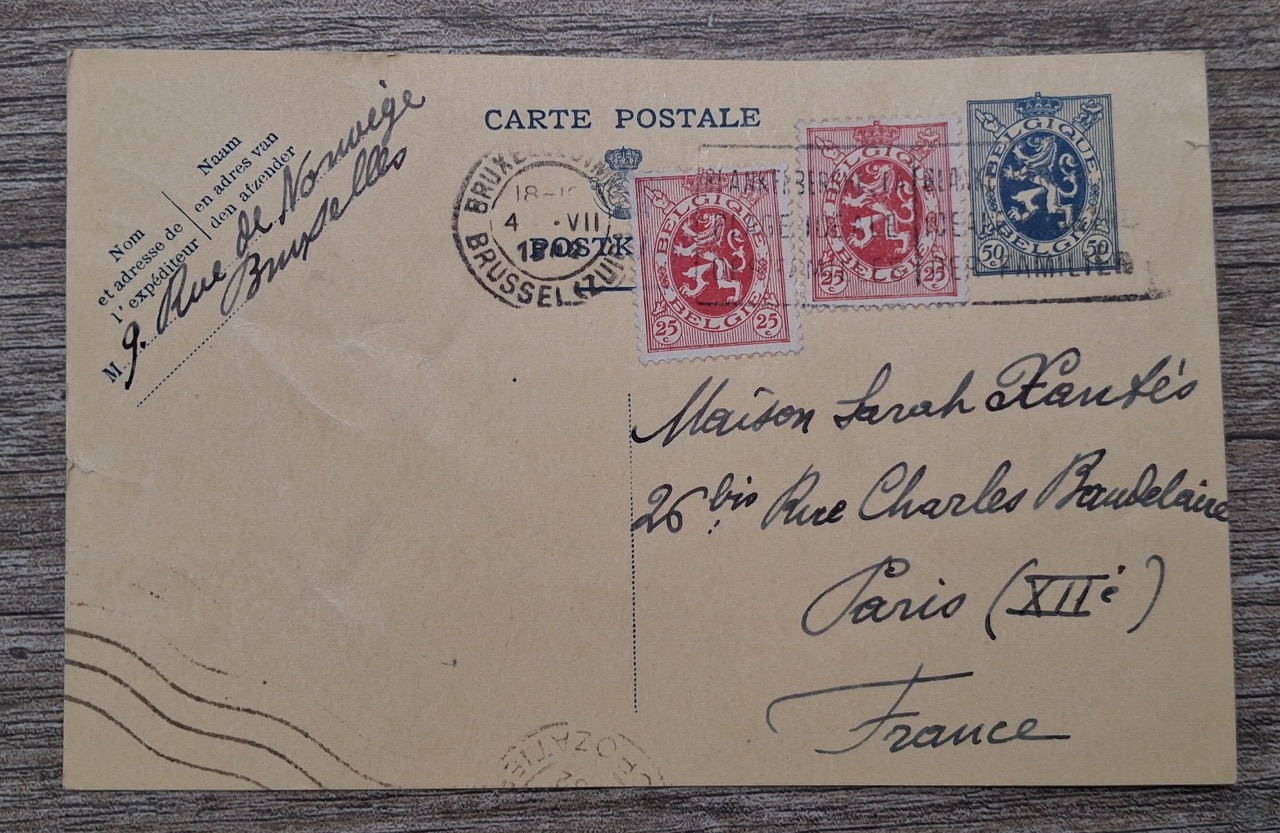 CARTE POSTALE
POSTK
Nom
et adresse de
l'expéditeur
Naam
en adres van
den afzender
M
9. Rue de Norvège
Bruxelles
BRUXELLES
18-
4 -VII
BRUSSEL (ZUID
BELGIQUE
BELGIE
25 c 25 c
BELGIQUE
BELGIE
25 c 25 c
BELGIQUE
BELGIE
50 c 50 c
BLANKENBERGHE
DER FAMILIEN
Maison Sarah Xantés
26 bis Rue Charles Baudelaire
Paris (XIIè)
France